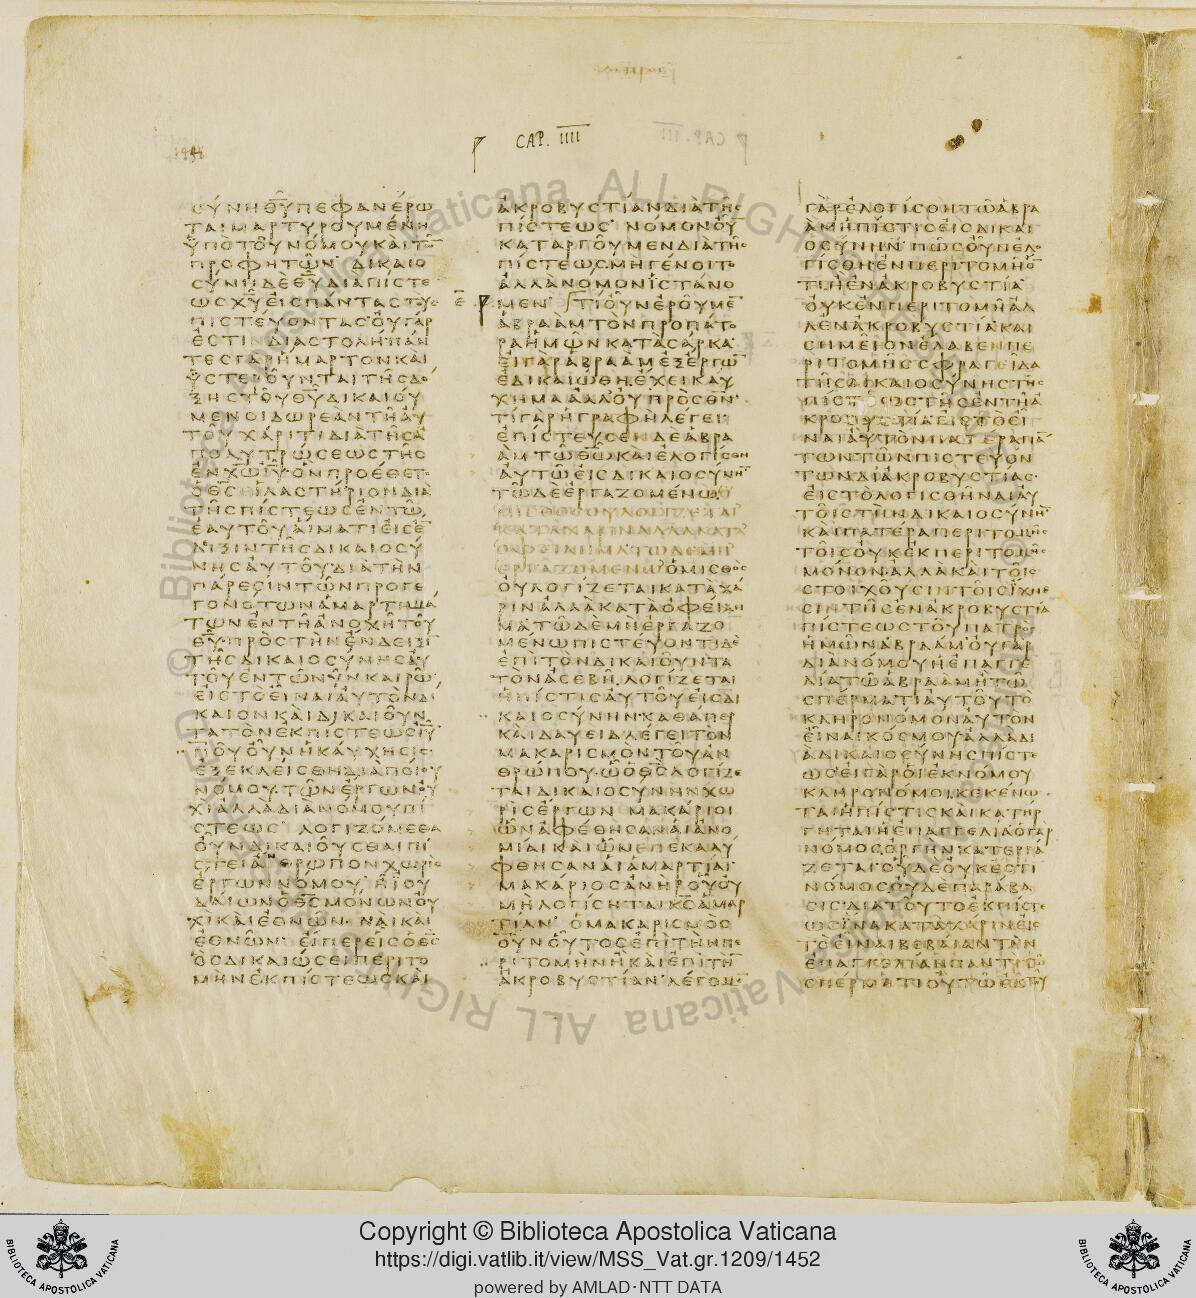 CAP. IIII
1448
CΥΝΗΘΥΠΕΦΑΝΕΡΩ
ΤΑΙΜΑΡΤΥΡΟΥΜΕΝΗ
ΥΠΟΤΟΥΝΟΜΟΥΚΑΙΤΩ̅
ΠΡΟΦΗΤΩΝ ΔΙΚΑΙΟ
CΥΝΗΔΕΘΥΔΙΑΠΙCΤΕ
ΩCΧΥΕΙCΠΑΝΤΑCΤΟΥC
ΠΙCΤΕΥΟΝΤΑCΟΥΓΑΡ
ΕCΤΙΝΔΙΑCΤΟΛΗΠΑΝ
ΤΕCΓΑΡΗΜΑΡΤΟΝΚΑΙ
ΥCΤΕΡΟΥΝΤΑΙΤΗCΔΟ
ΞΗCΤΟΥΘΥΔΙΚΑΙΟΥ
ΜΕΝΟΙΔΩΡΕΑΝΤΗΑΥ
ΤΟΥΧΑΡΙΤΙΔΙΑΤΗCΑ
ΠΟΛΥΤΡΩCΕΩCΤΗC
ΕΝΧΩΙΥΟΝΠΡΟΕΘΕΤΟ
ΟΘCΕΙΛΑCΤΗΡΙΟΝΔΙΑ
ΤΗCΠΙCΤΕΩCΕΝΤΩ
ΕΑΥΤΟΥΑΙΜΑΤΙΕΙCΕ̅
ΔΙΞΙΝΤΗCΔΙΚΑΙΟCΥ
ΝΗCΑΥΤΟΥΔΙΑΤΗΝ
ΠΑΡΕCΙΝΤΩΝΠΡΟΓΕ
ΓΟΝΟΤΩΝΑΜΑΡΤΗΜΑ
ΤΩΝΕΝΤΗΑΝΟΧΗΤΟΥ
ΘΥΠΡΟCΤΗΝΕΝΔΕΙΞΙ̅
ΤΗCΔΙΚΑΙΟCΥΝΗCΑΥ
ΤΟΥΕΝΤΩΝΥΝΚΑΙΡΩ
ΕΙCΤΟΕΙΝΑΙΑΥΤΟΝΔΙ
ΚΑΙΟΝΚΑΙΔΙΚΑΙΟΥΝ
ΤΑΤΟΝΕΚΠΙCΤΕΩCΙΥ
ΠΟΥΟΥΝΗΚΑΥΧΗCΙC
ΕΞΕΚΛΕΙCΘΗΔΙΑΠΟΙΟΥ
ΝΟΜΟΥΤΩΝΕΡΓΩΝΟΥ
ΧΙΑΛΛΑΔΙΑΝΟΜΟΥΠΙ
CΤΕΩC ΛΟΓΙΖΟΜΕΘΑ
ΟΥΝΔΙΚΑΙΟΥCΘΑΙΠΙ
CΤΕΙΑΝΘΡΩΠΟΝΧΩΡΙC
ΕΡΓΩΝΝΟΜΟΥ ΗΙΟΥ
ΔΑΙΩΝΟΘCΜΟΝΩΝΟΥ
ΧΙΚΑΙΕΘΝΩΝ ΝΑΙΚΑΙ
ΕΘΝΩΝ ΕΙΠΕΡΕΙCΟΘC
ΟCΔΙΚΑΙΩCΕΙΠΕΡΙΤΟ
ΜΗΝΕΚΠΙCΤΕΩCΚΑΙ
ΑΚΡΟΒΥCΤΙΑΝΔΙΑΤΗC
ΠΙCΤΕΩC ΝΟΜΟΝΟΥ̅
ΚΑΤΑΡΓΟΥΜΕΝΔΙΑΤΗC
ΠΙCΤΕΩCΜΗΓΕΝΟΙΤΟ
ΑΛΛΑΝΟΜΟΝΙCΤΑΝΟ
Ε̅ ΜΕΝ ΤΙΟΥΝΕΡΟΥΜΕ̅
ΑΒΡΑΑΜΤΟΝΠΡΟΠΑΤΟ
ΡΑΗΜΩΝΚΑΤΑCΑΡΚΑ
ΕΙΓΑΡΑΒΡΑΑΜΕΞΕΡΓΩ̅
ΕΔΙΚΑΙΩΘΗΕΧΕΙΚΑΥ
ΧΗΜΑΑΛΛΟΥΠΡΟCΘΝ
ΤΙΓΑΡΗΓΡΑΦΗΛΕΓΕΙ
ΕΠΙCΤΕΥCΕΝΔΕΑΒΡΑ
ΑΜΤΩΘΩΚΑΙΕΛΟΓΙCΘΗ
ΑΥΤΩΕΙCΔΙΚΑΙΟCΥΝΗΝ
ΤΩΔΕΕΡΓΑΖΟΜΕΝΩΟ
ΜΙCΘΟCΟΥΛΟΓΙΖΕΤΑΙ
ΚΑΤΑΧΑΡΙΝΑΛΛΑΚΑΤΑ
ΟΦΕΙΛΗΜΑΤΩΔΕΜΗ
ΕΡΓΑΖΟΜΕΝΩΟΜΙCΘΟC
ΟΥΛΟΓΙΖΕΤΑΙΚΑΤΑΧΑ
ΡΙΝΑΛΛΑΚΑΤΑΟΦΕΙΛΗ
ΜΑΤΩΔΕΜΗΕΡΓΑΖΟ
ΜΕΝΩΠΙCΤΕΥΟΝΤΙΔΕ
ΕΠΙΤΟΝΔΙΚΑΙΟΥΝΤΑ
ΤΟΝΑCΕΒΗΛΟΓΙΖΕΤΑΙ
ΗΠΙCΤΙCΑΥΤΟΥΕΙCΔΙ
ΚΑΙΟCΥΝΗΝΚΑΘΑΠΕΡ
ΚΑΙΔΑΥΕΙΔΛΕΓΕΙΤΟΝ
ΜΑΚΑΡΙCΜΟΝΤΟΥΑΝ
ΘΡΩΠΟΥΩΟΘCΛΟΓΙΖΕ
ΤΑΙΔΙΚΑΙΟCΥΝΗΝΧΩ
ΡΙCΕΡΓΩΝ ΜΑΚΑΡΙΟΙ
ΩΝΑΦΕΘΗCΑΝΑΙΑΝΟ
ΜΙΑΙΚΑΙΩΝΕΠΕΚΑΛΥ
ΦΘΗCΑΝΑΙΑΜΑΡΤΙΑΙ
ΜΑΚΑΡΙΟCΑΝΗΡΟΥΟΥ
ΜΗΛΟΓΙCΗΤΑΙΚCΑΜΑΡ
ΤΙΑΝ ΟΜΑΚΑΡΙCΜΟC
ΟΥΝΟΥΤΟCΕΠΙΤΗΝΠΕ
ΡΙΤΟΜΗΝΗΚΑΙΕΠΙΤΗ̅
ΑΚΡΟΒΥCΤΙΑΝ ΛΕΓΟΜΕ̅
ΓΑΡΕΛΟΓΙCΘΗΤΩΑΒΡΑ
ΑΜΗΠΙCΤΙCΕΙCΔΙΚΑΙ
ΟCΥΝΗΝ ΠΩCΟΥΝΕΛΟ
ΓΙCΘΗΕΝΠΕΡΙΤΟΜΗΟ̅
ΤΙΗΕΝΑΚΡΟΒΥCΤΙΑ
ΟΥΚΕΝΠΕΡΙΤΟΜΗΑΛ
ΛΕΝΑΚΡΟΒΥCΤΙΑΚΑΙ
CΗΜΕΙΟΝΕΛΑΒΕΝΠΕ
ΡΙΤΟΜΗCCΦΡΑΓΕΙΔΑ
ΤΗCΔΙΚΑΙΟCΥΝΗCΤΗC
ΠΙCΤΕΩCΤΗCΕΝΤΗΑ
ΚΡΟΒΥCΤΙΑΕΙCΤΟΕΙ
ΝΑΙΑΥΤΟΝΠΑΤΕΡΑΠΑ̅
ΤΩΝΤΩΝΠΙCΤΕΥΟΝ
ΤΩΝΔΙΑΚΡΟΒΥCΤΙΑC
ΕΙCΤΟΛΟΓΙCΘΗΝΑΙΑΥ
ΤΟΙCΤΗΝΔΙΚΑΙΟCΥΝΗ̅
ΚΑΙΠΑΤΕΡΑΠΕΡΙΤΟΜΗC
ΤΟΙCΟΥΚΕΚΠΕΡΙΤΟΜΗC
ΜΟΝΟΝΑΛΛΑΚΑΙΤΟΙC
CΤΟΙΧΟΥCΙΝΤΟΙCΙΧΝΕ
CΙΝΤΗCΕΝΑΚΡΟΒΥCΤΙΑ
ΠΙCΤΕΩCΤΟΥΠΑΤΡΟC
ΗΜΩΝΑΒΡΑΑΜΟΥΓΑΡ
ΔΙΑΝΟΜΟΥΗΕΠΑΓΓΕ
ΛΙΑΤΩΑΒΡΑΑΜΗΤΩ
CΠΕΡΜΑΤΙΑΥΤΟΥΤΟ
ΚΛΗΡΟΝΟΜΟΝΑΥΤΟΝ
ΕΙΝΑΙΚΟCΜΟΥΑΛΛΑΔΙ
ΑΔΙΚΑΙΟCΥΝΗCΠΙCΤΕ
ΩCΕΙΓΑΡΟΙΕΚΝΟΜΟΥ
ΚΛΗΡΟΝΟΜΟΙΚΕΚΕΝΩ
ΤΑΙΗΠΙCΤΙCΚΑΙΚΑΤΗΡ
ΓΗΤΑΙΗΕΠΑΓΓΕΛΙΑΟΓΑΡ
ΝΟΜΟCΟΡΓΗΝΚΑΤΕΡΓΑ
ΖΕΤΑΙΟΥΔΕΟΥΚΕCΤΙ
ΝΟΜΟCΟΥΔΕΠΑΡΑΒΑ
CΙC ΔΙΑΤΟΥΤΟΕΚΠΙCΤΕ
ΩCΙΝΑΚΑΤΑΧΑΡΙΝΕΙC
ΤΟΕΙΝΑΙΒΕΒΑΙΑΝΤΗΝ
ΕΠΑΓΓΕΛΙΑΝΠΑΝΤΙΤΩ
CΠΕΡΜΑΤΙΟΥΤΩΕΚΤΟΥ
Copyright © Biblioteca Apostolica Vaticana
https://digi.vatlib.it/view/MSS_Vat.gr.1209/1452
powered by AMLAD·NTT DATA
BIBLIOTECA APOSTOLICA VATICANA
BIBLIOTECA APOSTOLICA VATICANA